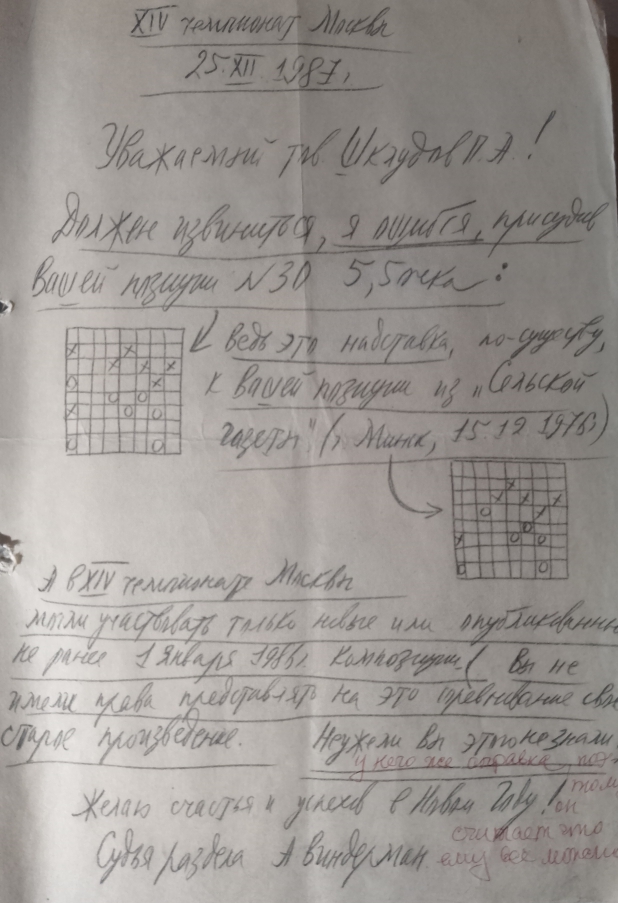 XIV чемпионат Москвы
25.XII 1987г.
Уважаемый тов. Шклудов П.А.!
Должен извиниться, я ошибся, присудив
Вашей позиции №30 5,5 очка:
Ведь это надставка, по-существу,
к Вашей позиции из „Сельской
газеты" (г. Минск, 15.12.1976г)
А в XIV чемпионате Москвы
могли участвовать только новые или опубликованные
не ранее 1 января 1986г. композиции (Вы не
имели права представлять на это соревнование свое
старое произведение. Неужели Вы этого не знали
у него же справка, поэ-
тому
Желаю счастья и успехов в Новом Году! он
считает это
Судья раздела А Виндерман ему все можно